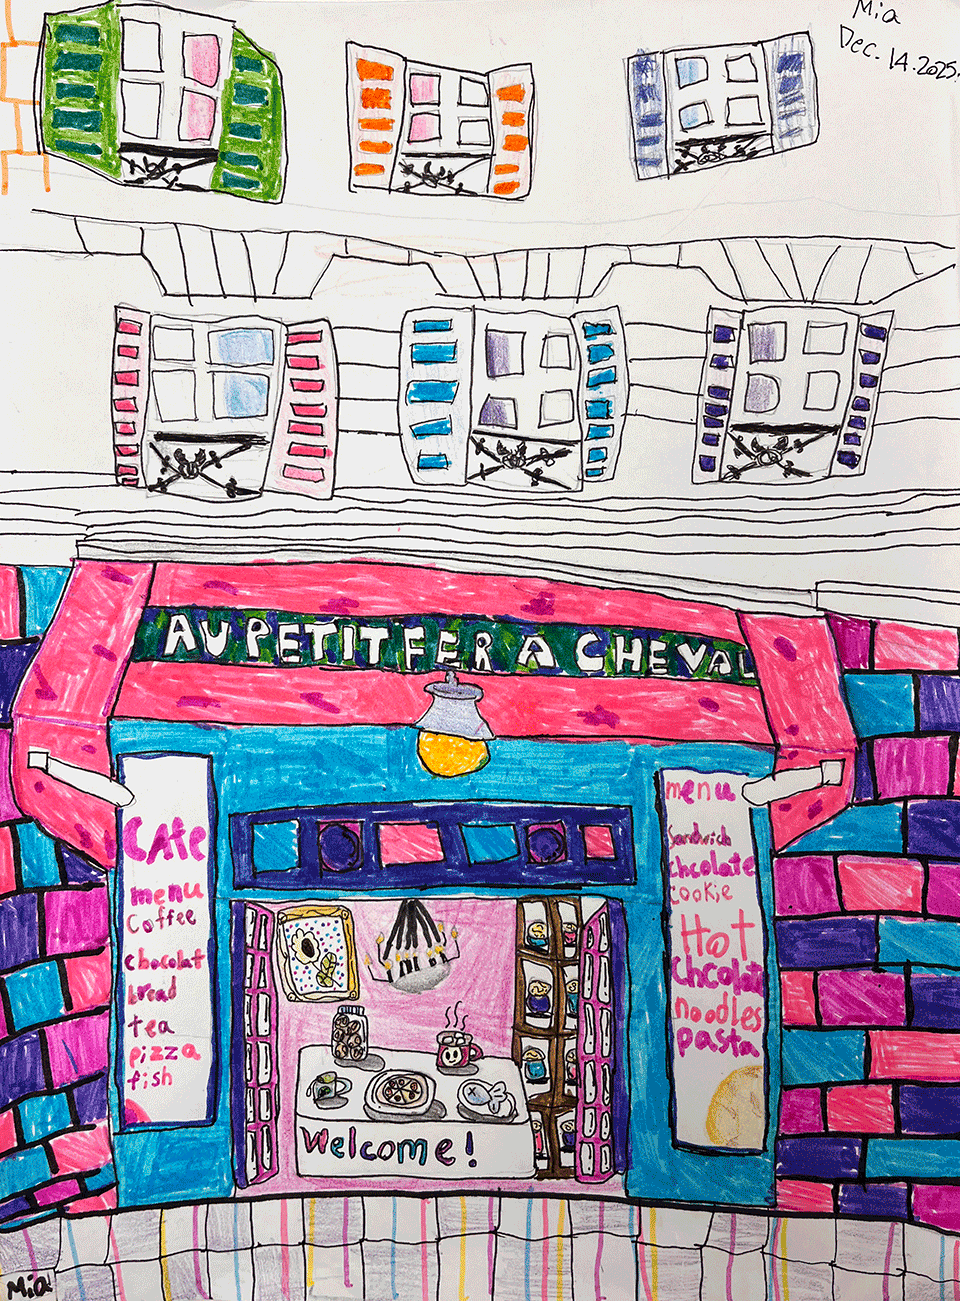 Mia
Dec. 14. 2025.
AU PETIT FER A CHEVAL
CAfe
menu
Coffee
chocolat
bread
tea
pizza
fish
menu
Sandwich
chcolate
cookie
Hot
chcolate
noodles
pasta
Welcome!
Mia